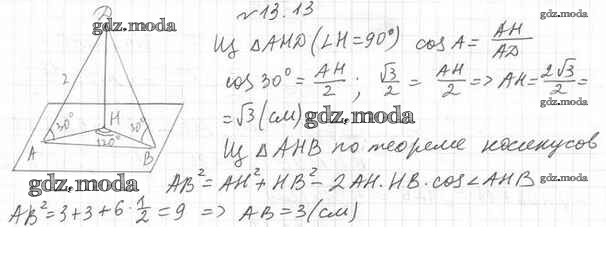 №13.13
gdz.moda
D
gdz.moda
Из △AHD (∠H=90°) cos A = AH/AD
2
cos 30° = AH/2 ; √3/2 = AH/2 => AH = 2√3/2 =
gdz.moda
H
30°
30°
120°
A
B
= √3 (см)
gdz.moda
Из △AHB по теореме косинусов
gdz.moda
AB² = AH² + HB² - 2AH·HB·cos∠AHB
gdz.moda
AB² = 3+3+6·1/2 = 9 => AB = 3 (см)